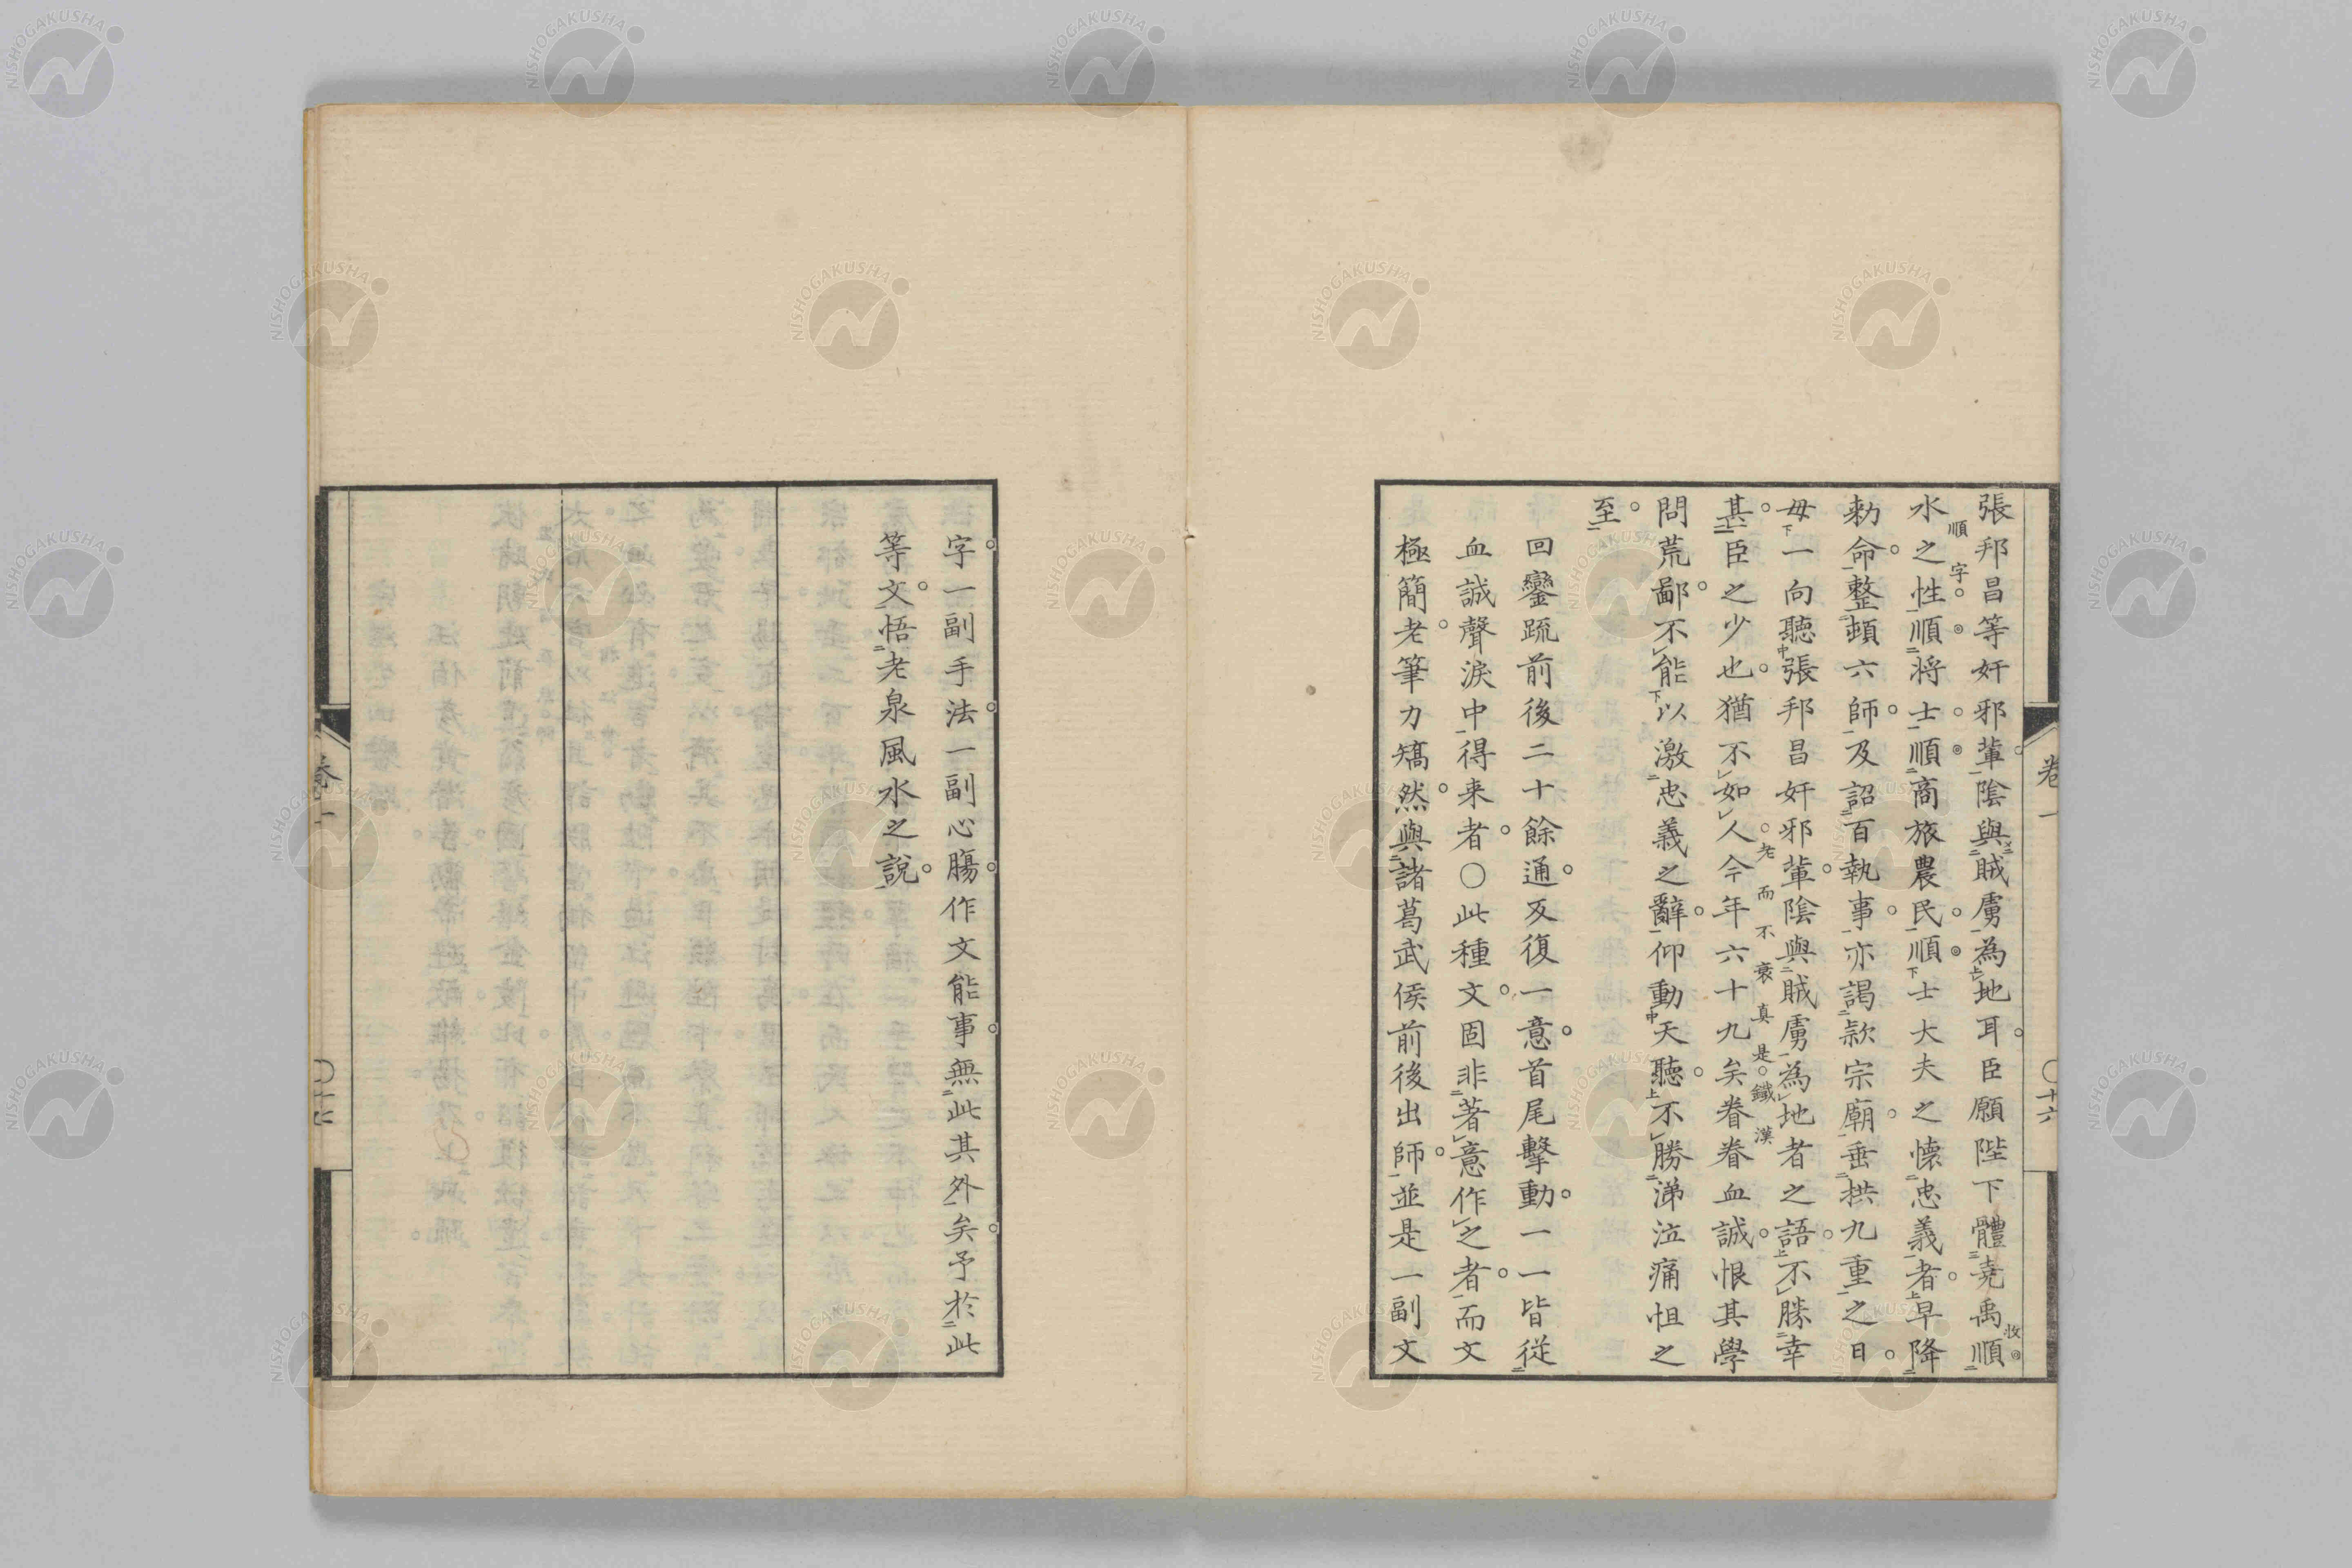 張邦昌等奸邪輩陰與賊虜為地耳臣願陛下體堯禹順
水之性順將士順商旅農民順士大夫之懐忠義者早降
勅命整頓六師及詔百執事亦謁款宗廟垂拱九重之日
毋一向聽張邦昌奸邪輩陰與賊虜為地者之語不勝幸
甚臣之少也猶不如人今年六十九矣眷眷血誠恨其學
問荒鄙不能以激忠義之辭仰動天聽不勝涕泣痛怛之
至
回鑾疏前後二十餘通反復一意首尾擊動一一皆從
血誠聲淚中得来者〇此種文固非著意作之者而文
極簡老筆力矯然與諸葛武侯前後出師並是一副文
收
順字
老而不衰真是鐵漢
卷一
〇十六
字一副手法一副心膓作文能事無此其外矣予於此
等文悟老泉風水之說
NISHOGAKUSHA